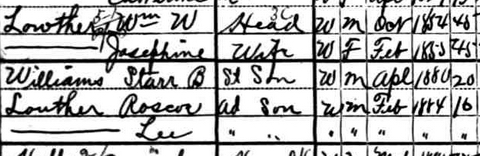 Lowther Wm W Head W M Oct 1854 45
—— Josephine Wife W F Feb 1855 45
Williams Starr B St Son W M Apl 1880 20
Louther Roscoe ad Son W M Feb 1884 16
—— Lee " " " " " " "